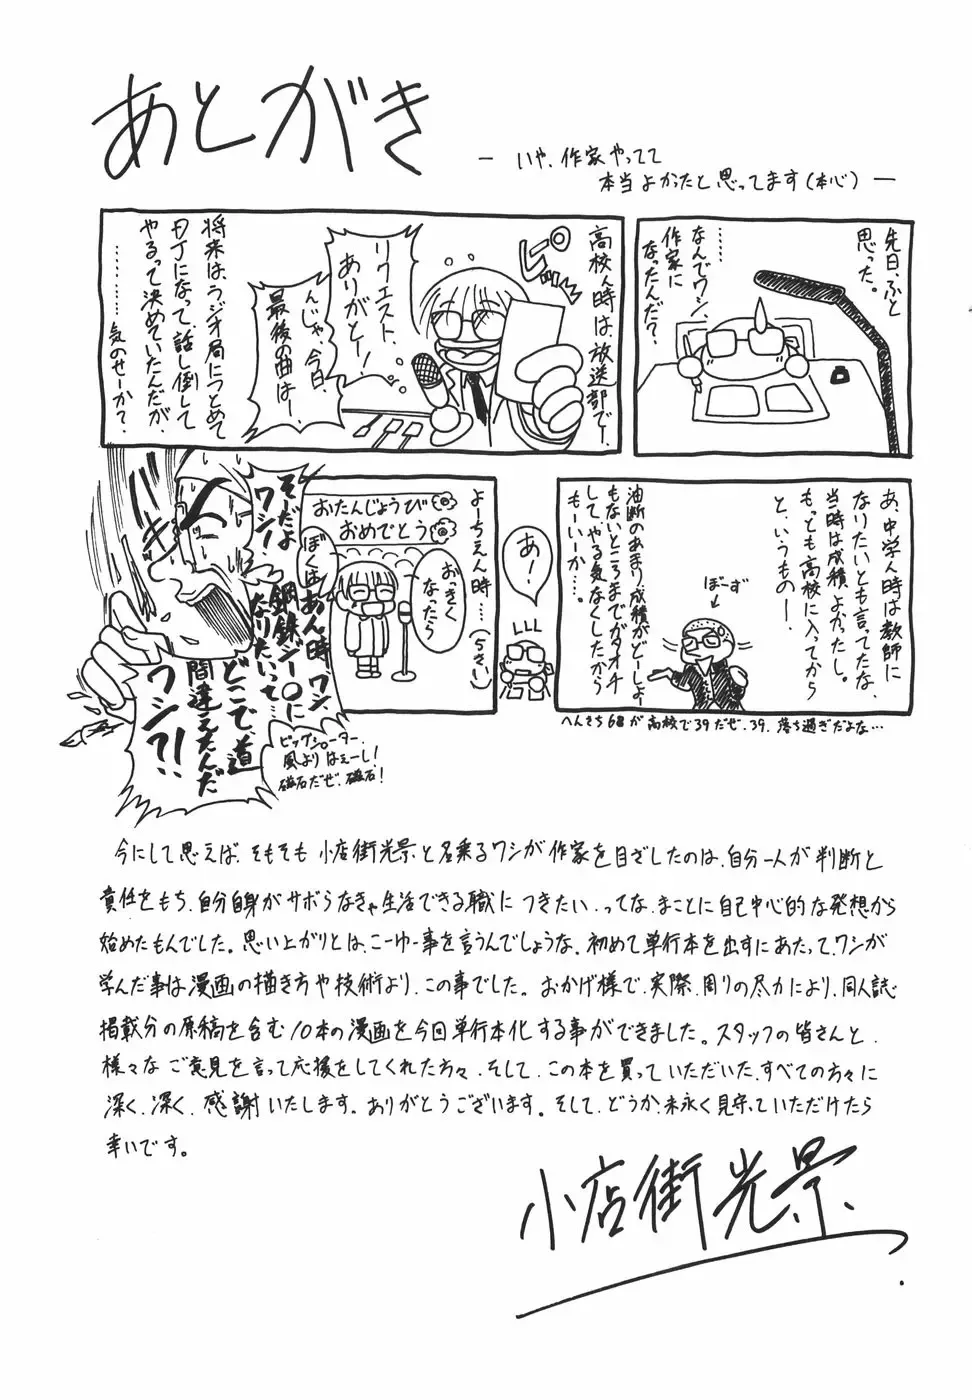 あとがき
― いや、作家やってて
本当よかったと思ってます(本心) ―
先日、ふと
思った。
なんでワシ、
作家に
なったんだ?
高校ん時は放送部でー、
ピロ
リクエスト、
ありがとー!
んじゃ、今日、
最後の曲はー、
将来は、ラジオ局につとめて
DJになって、話し倒して
やるって決めていたんだが、
………気のせーか?
あ、中学ん時は教師に
なりたいとも言ってたな、
当時は成績よかったし。
もっとも高校に入ってから
と、いうものー、
ぼーず
油断のあまり、成績がどーしょー
もないところまでガタオチ
して、やる気なくしたから
もーいーか…。
へんさち68が高校で39だぜ、39。落ち過ぎだよな…
あ!
よーちえん時…(ちさい)
おたんじょうび
おめでとう
おっきく
なったら
ぼくは
そーだよ
ワシー!
あん時、ワシ、
鋼鉄ジー〇に
なりたいって…
どこで道
間違えたんだ
ワシ?!
ビッグシューター、
風よりはえーし!
磁石だぜ、磁石!
今にして思えば、そもそも小店街光景と名乗るワシが作家を目ざしたのは、自分一人が判断と
責任をもち、自分自身がサボらなきゃ生活できる職につきたい、ってな、まことに自己中心的な発想から
始めたもんでした。思い上がりとは、こーゆー事を言うんでしょうな。初めて単行本を出すにあたって、ワシが
学んだ事は漫画の描き方や技術より、この事でした。おかげ様で、実際、周りの尽力により、同人誌
掲載分の原稿を含む10本の漫画を今回単行本化する事ができました。スタッフの皆さんと、
様々なご意見を言って応援をしてくれた方々、そして、この本を買っていただいた、すべての方々に
深く、深く、感謝いたします。ありがとうございます。そして、どうか、末永く見守っていただけたら
幸いです。
小店街光景